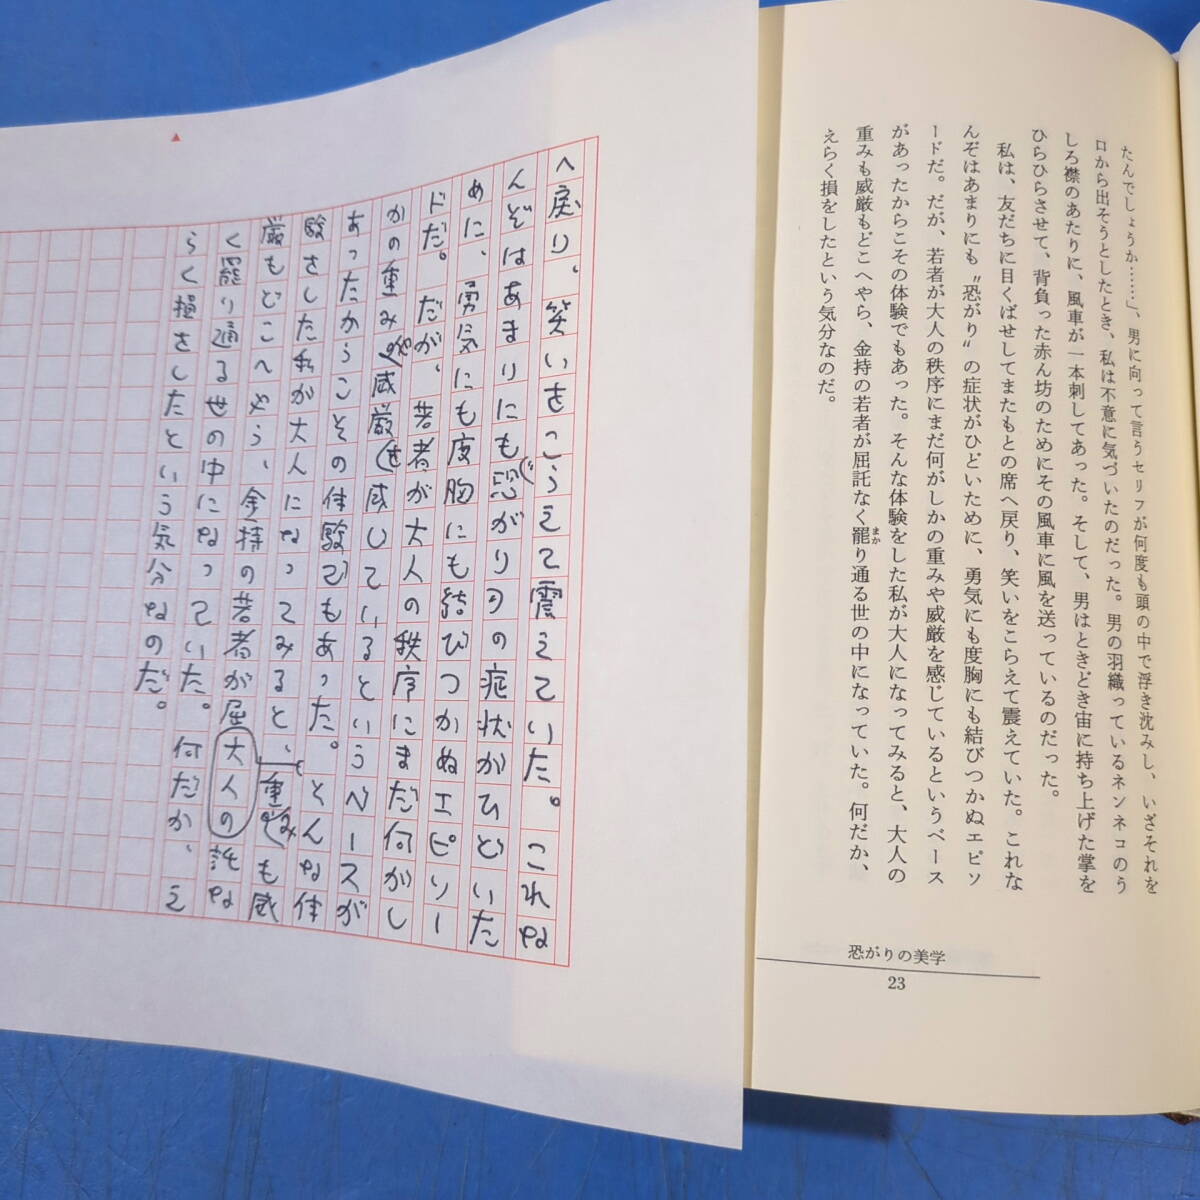 たんでしょうか……」、男に向って言うセリフが何度も頭の中で浮き沈みし、いざそれを
口から出そうとしたとき、私は不意に気づいたのだった。男の羽織っているネンネコのう
しろ襟のあたりに、風車が一本刺してあった。そして、男はときどき宙に持ち上げた掌を
ひらひらさせて、背負った赤ん坊のためにその風車に風を送っているのだった。
私は、友だちに目くばせしてまたもとの席へ戻り、笑いをこらえて震えていた。これな
んぞはあまりにも〝恐がり〟の症状がひどいために、勇気にも度胸にも結びつかぬエピソ
ードだ。だが、若者が大人の秩序にまだ何がしかの重みや威厳を感じているというベース
があったからこその体験でもあった。そんな体験をした私が大人になってみると、大人の
重みも威厳もどこへやら、金持の若者が屈託なく罷り通る世の中になっていた。何だか、
まか
えらく損をしたという気分なのだ。
恐がりの美学
23
へ戻り、笑いをこらえて震えていた。これな
んぞはあまりにも〝恐がり〟の症状がひどいた
めに、勇気にも度胸にも結びつかぬエピソー
ドだ。だが、若者が大人の秩序にまだ何がし
かの重みや威厳を感じているというベースが
あったからこその体験でもあった。そんな体
験をした私が大人になってみると、重みも威
大人の
厳もどこへやら、金持の若者が屈託な
く罷り通る世の中になっていた。何だか、え
らく損をしたという気分なのだ。